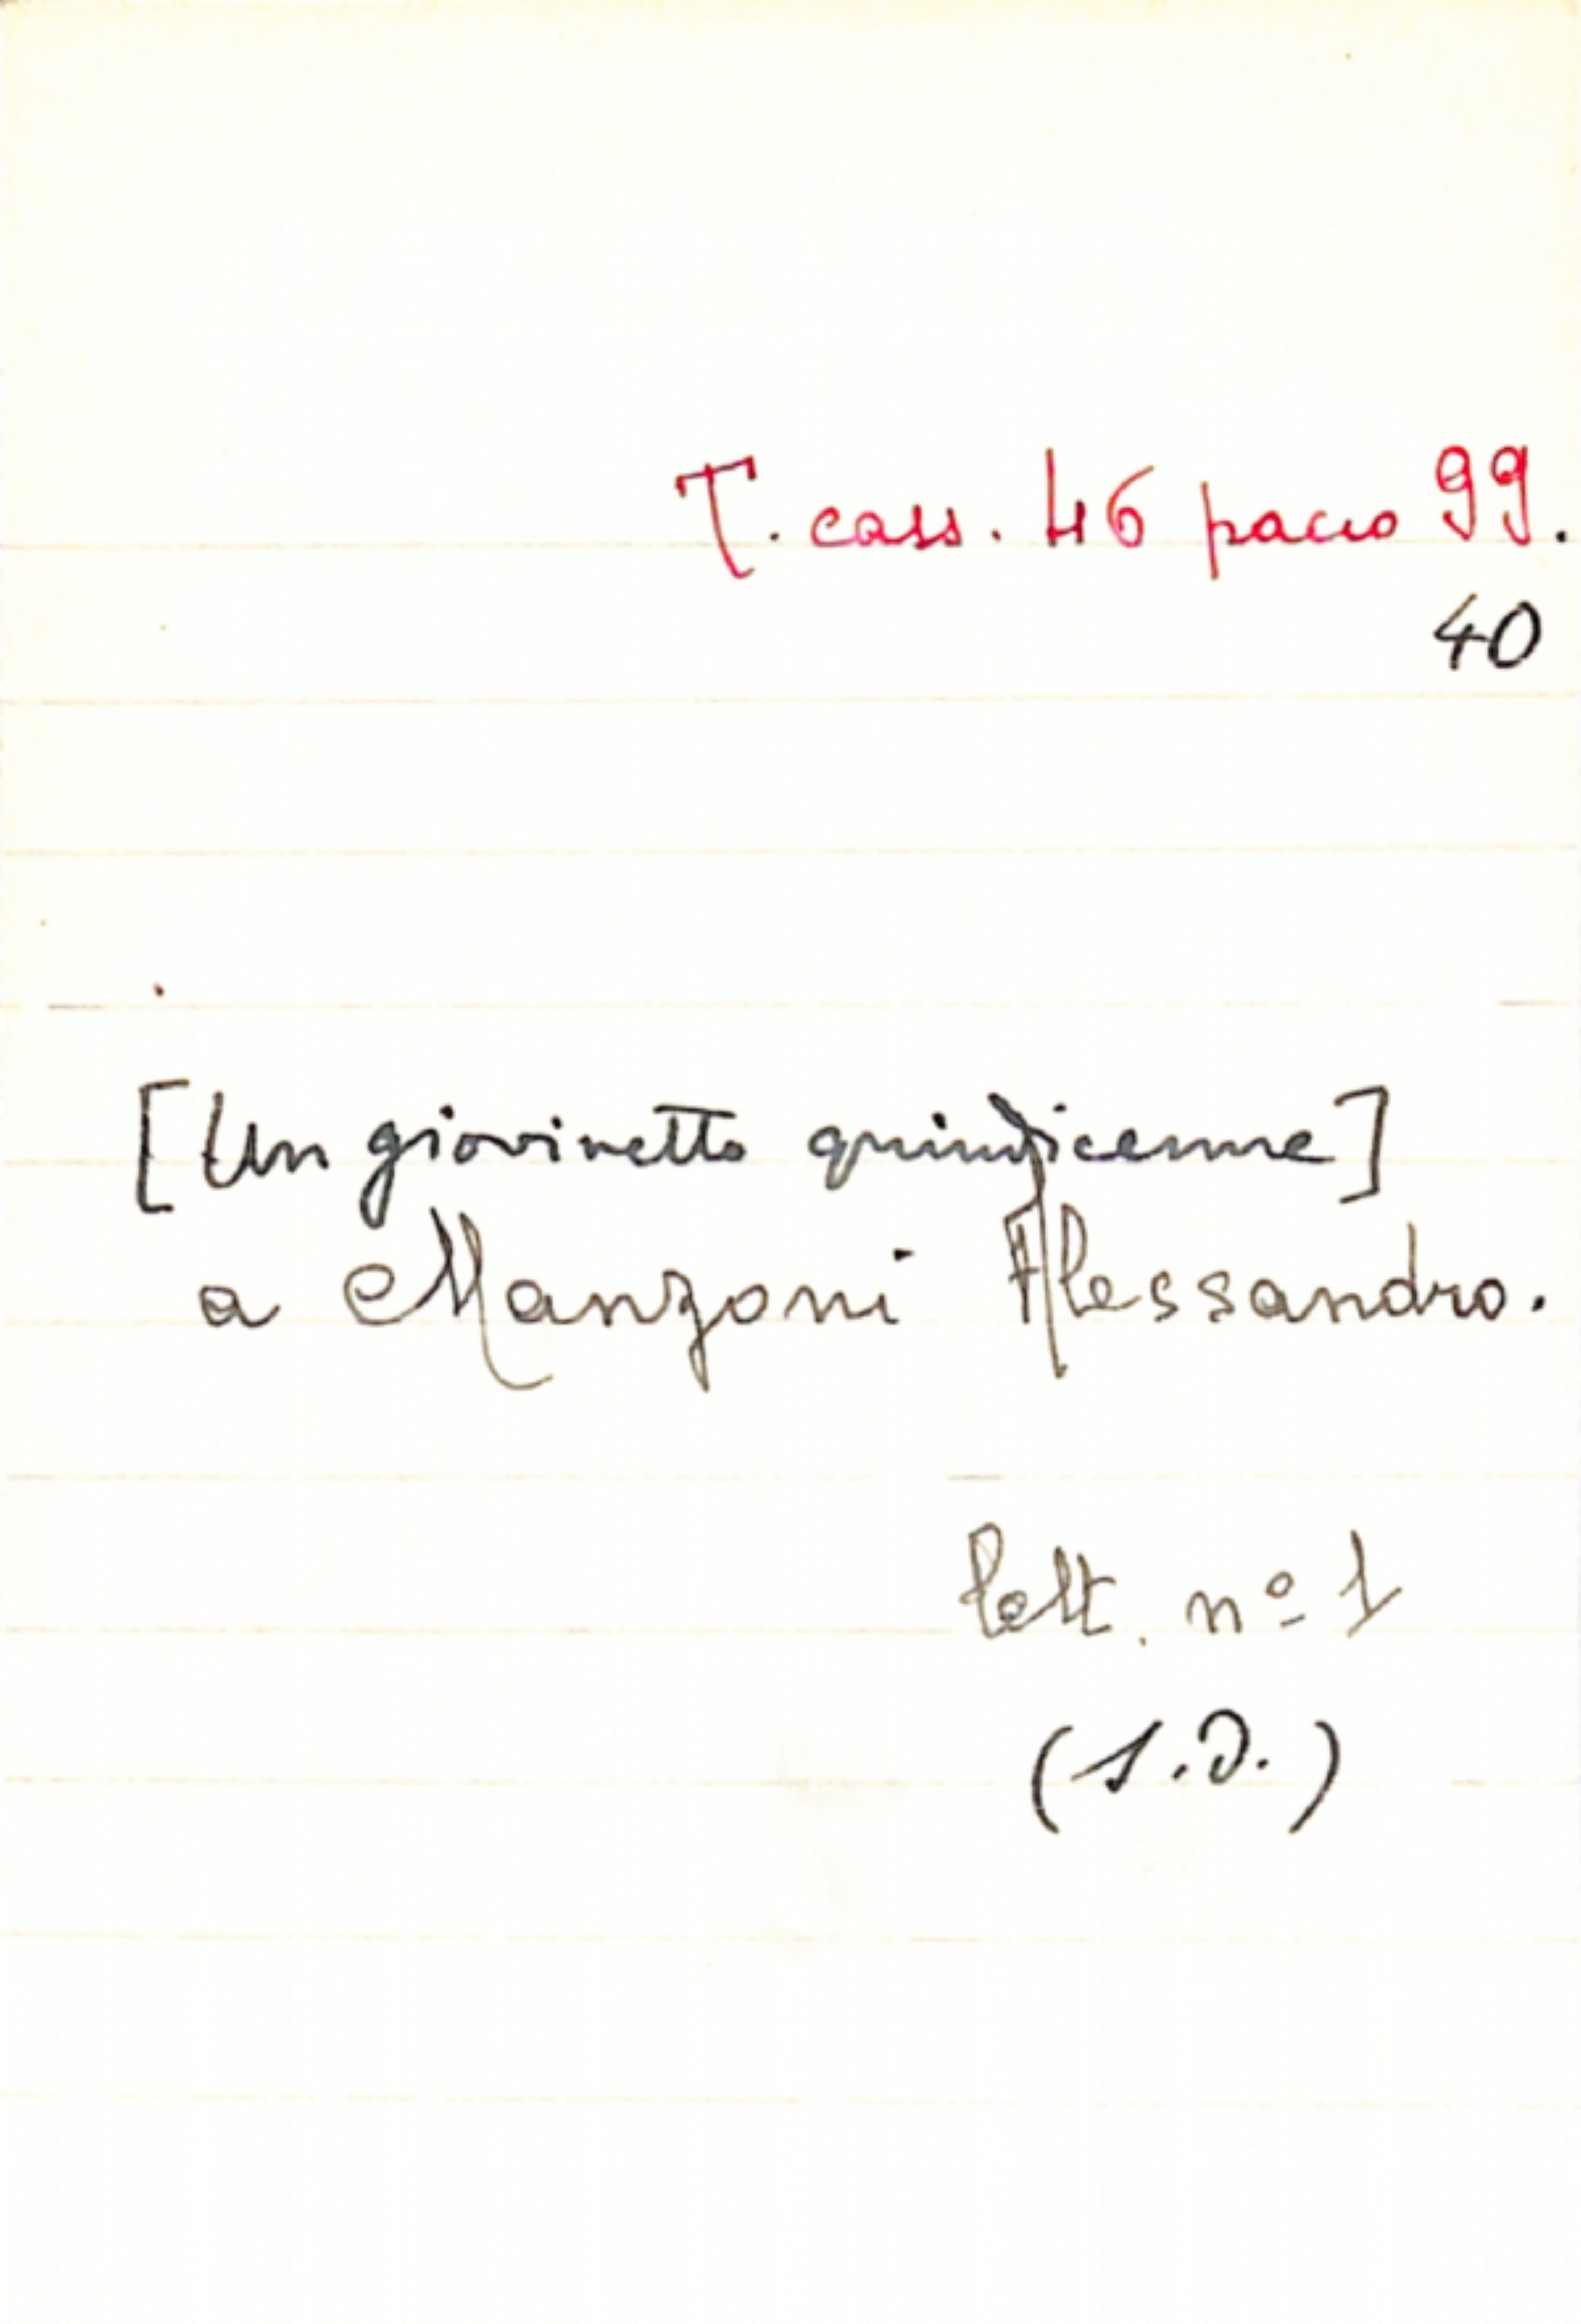 T. cass. 46 pacco 99.
40
[Un giovinetto quindicenne]
a Manzoni Alessandro.
lett. nº 1
(s.d.)